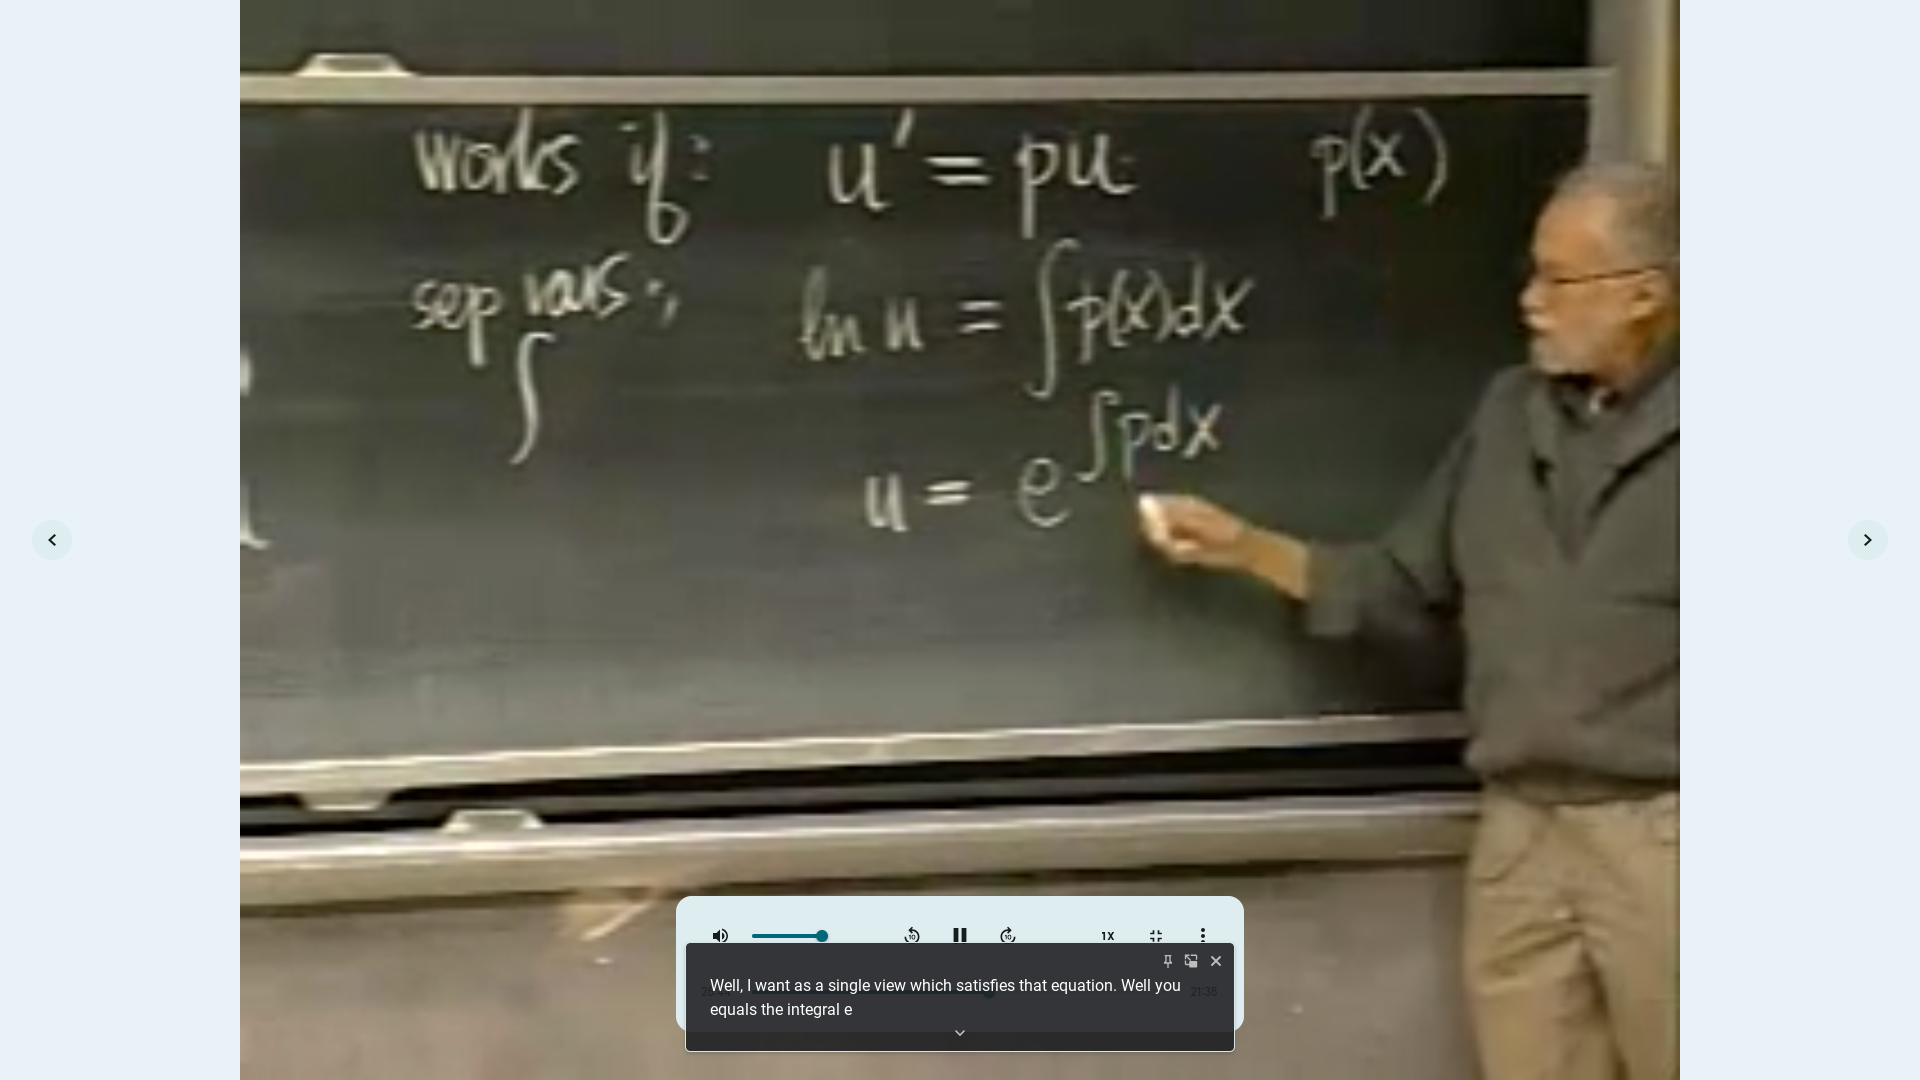 works if: u' = pu p(x)
sep vars., ln u = ∫p(x)dx
∫
u = e^∫pdx
1X
21:35
Well, I want as a single view which satisfies that equation. Well you
equals the integral e